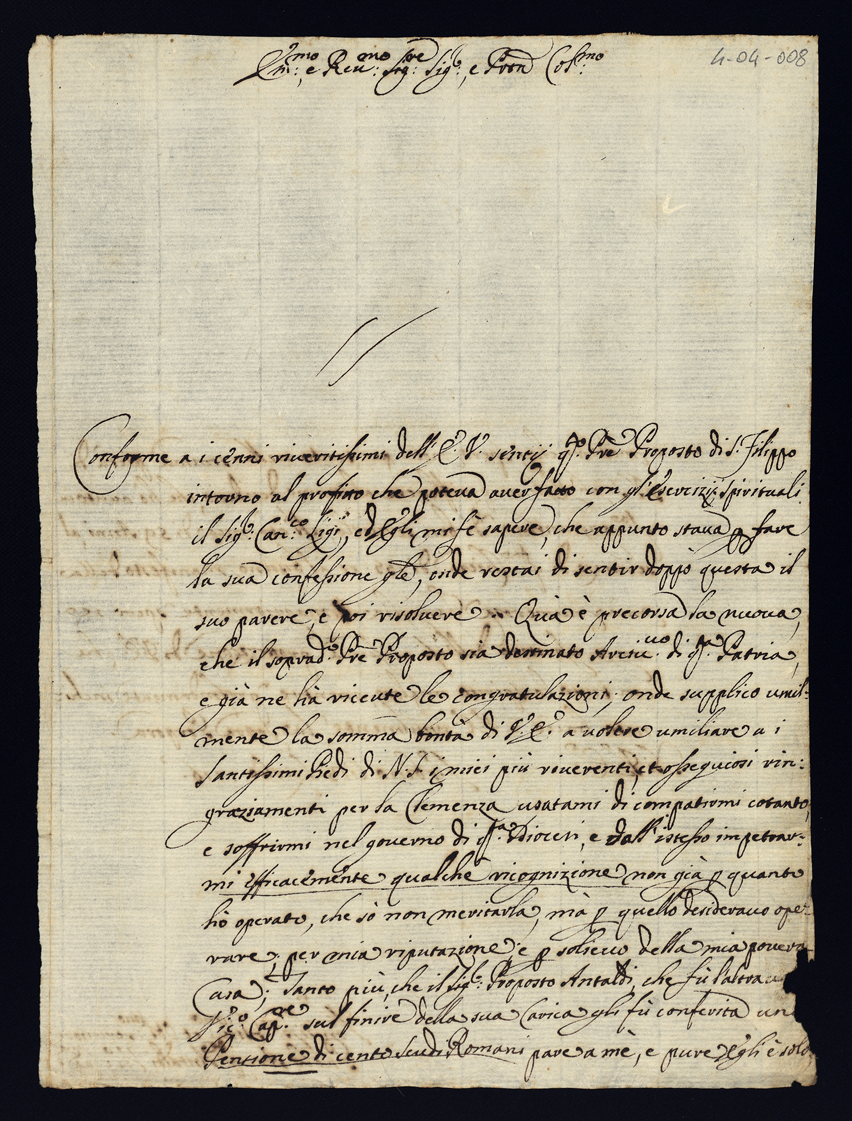 4-04-008
Ill.mo e Rev.mo Sig.re Sig.r, e Pron Col.mo
Conforme a i cenni riveritissimi dell'E. V. sentij q.o Prè Proposto di S. Filippo
intorno al profitto che poteva aver fatto con gl'Esercizij spirituali
il Sig.r Can.co Ligi, ed Egli mi fè sapere, che appunto stava p fare
la sua confessione gle, onde restai di sentir doppò questa il
suo parere, e poi risolvere. Quà è precorsa la nuova,
che il soprad.o Prè Proposto sia destinato Arciv.vo di q.a Patria,
e già ne hà ricevute le congratulazioni; onde supplico umil-
mente la somma bontà di V. E. a voler umiliare a i
Santissimi Piedi di N. S. i miei più riverenti, et ossequiosi rin-
graziamenti per la Clemenza usatami di compatirmi cotanto,
e soffrirmi nel governo di q.sta Diocesi, e dall'istesso impetrar-
mi efficacemente qualche ricognizione non già p quanto
hò operato, che sò non meritarla, mà p quello desideravo ope-
rare, per mia riputazione, e p sollievo della mia povera
Casa; Tanto più, che il Sig.r Proposto Antaldi, che fù l'altra
Vic.o Cap.re sul finire della sua Carica gli fù conferita una
Pensione di cento Scudi Romani pare a mè, e pure Egli è solo